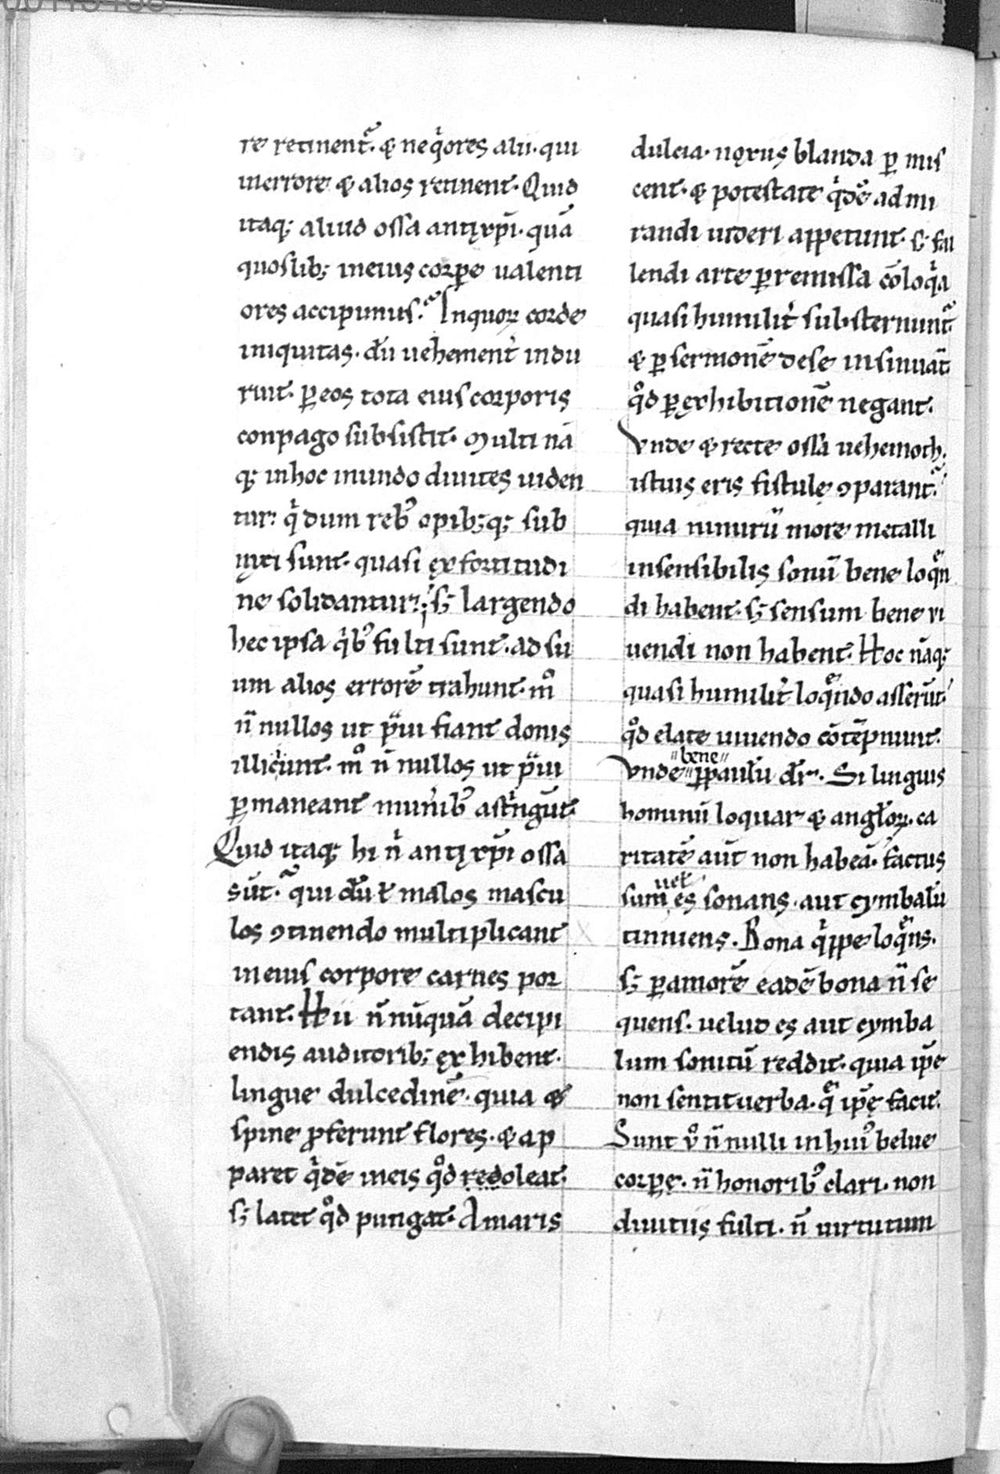 re retinent᷑. & neq͛ores alii. qui
in errore & alios retinent. Quid
itaq; aliud ossa antixp̄i. quā
quoslib; in eius corpe ualenti
ores accipimus. In quoꝝ corde
iniquitas. dū uehement͛ indu
ruit. ꝑ eos tota eius corporis
conpago subsistit. Multi nā
q; in hoc mundo diuites uiden
tur. q̇ dum reb᷒ opib;q; sub
nixi sunt. quasi ex fortitudi
ne solidantur; s; largendo
hec ipsa q̇b᷒ fulti sunt. ad su
um alios errorē trahunt. m̊
n̄ nullos ut p̄ui fiant donis
illiciunt. m̊ n̄ nullos ut p̄ui
ꝑmaneant munib᷒ astringūt.
Quid itaq; hi n̄ antixp̄i ossa
sūt. qui dū ł malos mascu
los ꝯtinendo multiplicant
in eius corpore carnes por
tant. Hii n̄ nūquā decipi
endis auditorib; exhibent.
lingue dulcedinē. quia &
spine ꝓferunt flores. & ap
paret q̇dē in eis q̊d redoleat.
s; latet q̊d pungat. Amaris
dulcia. noxiis blanda ꝑ mis
cent. & potestate q̇dē ad mi
randi uideri appetunt. s; fal
lendi arte ꝑremissa cōloq̄a
quasi humilit͛ substernunt᷑
& ꝑ sermonē de se insinuāt
q̊d ꝑ exhibitionē negant.
Vnde & recte ossa uehemoth
istius eris fistule ꝯparant᷑.
quia nimirū more metalli
insensibilis sonū bene loq̄n
di habent. s; sensum bene ui
uendi non habent. Hoc nāq;
quasi humilit͛ loq̄ndo asserūt.
q̊d elate uiuendo cōtēpnunt.
bene
Vnde ꝑ paulū dr̄. Si linguis
hominū loquar & angłoꝝ. ca
ritatē aūt non habeā. factus
uel
sum es sonans. aut cymbalū
tinniens. Bona q̇ppe loq̄ns.
s; ꝑ amorē eadē bona n̄ se
quens. uelud es aut cymba
lum sonitū reddit. quia ip̄e
non sentit uerba. q̄ ip̄e facit.
Sunt ů n̄ nulli in hui᷒ belue
corpe. n̄ honorib᷒ clari. non
diuitiis fulti. n̄ uirtutum